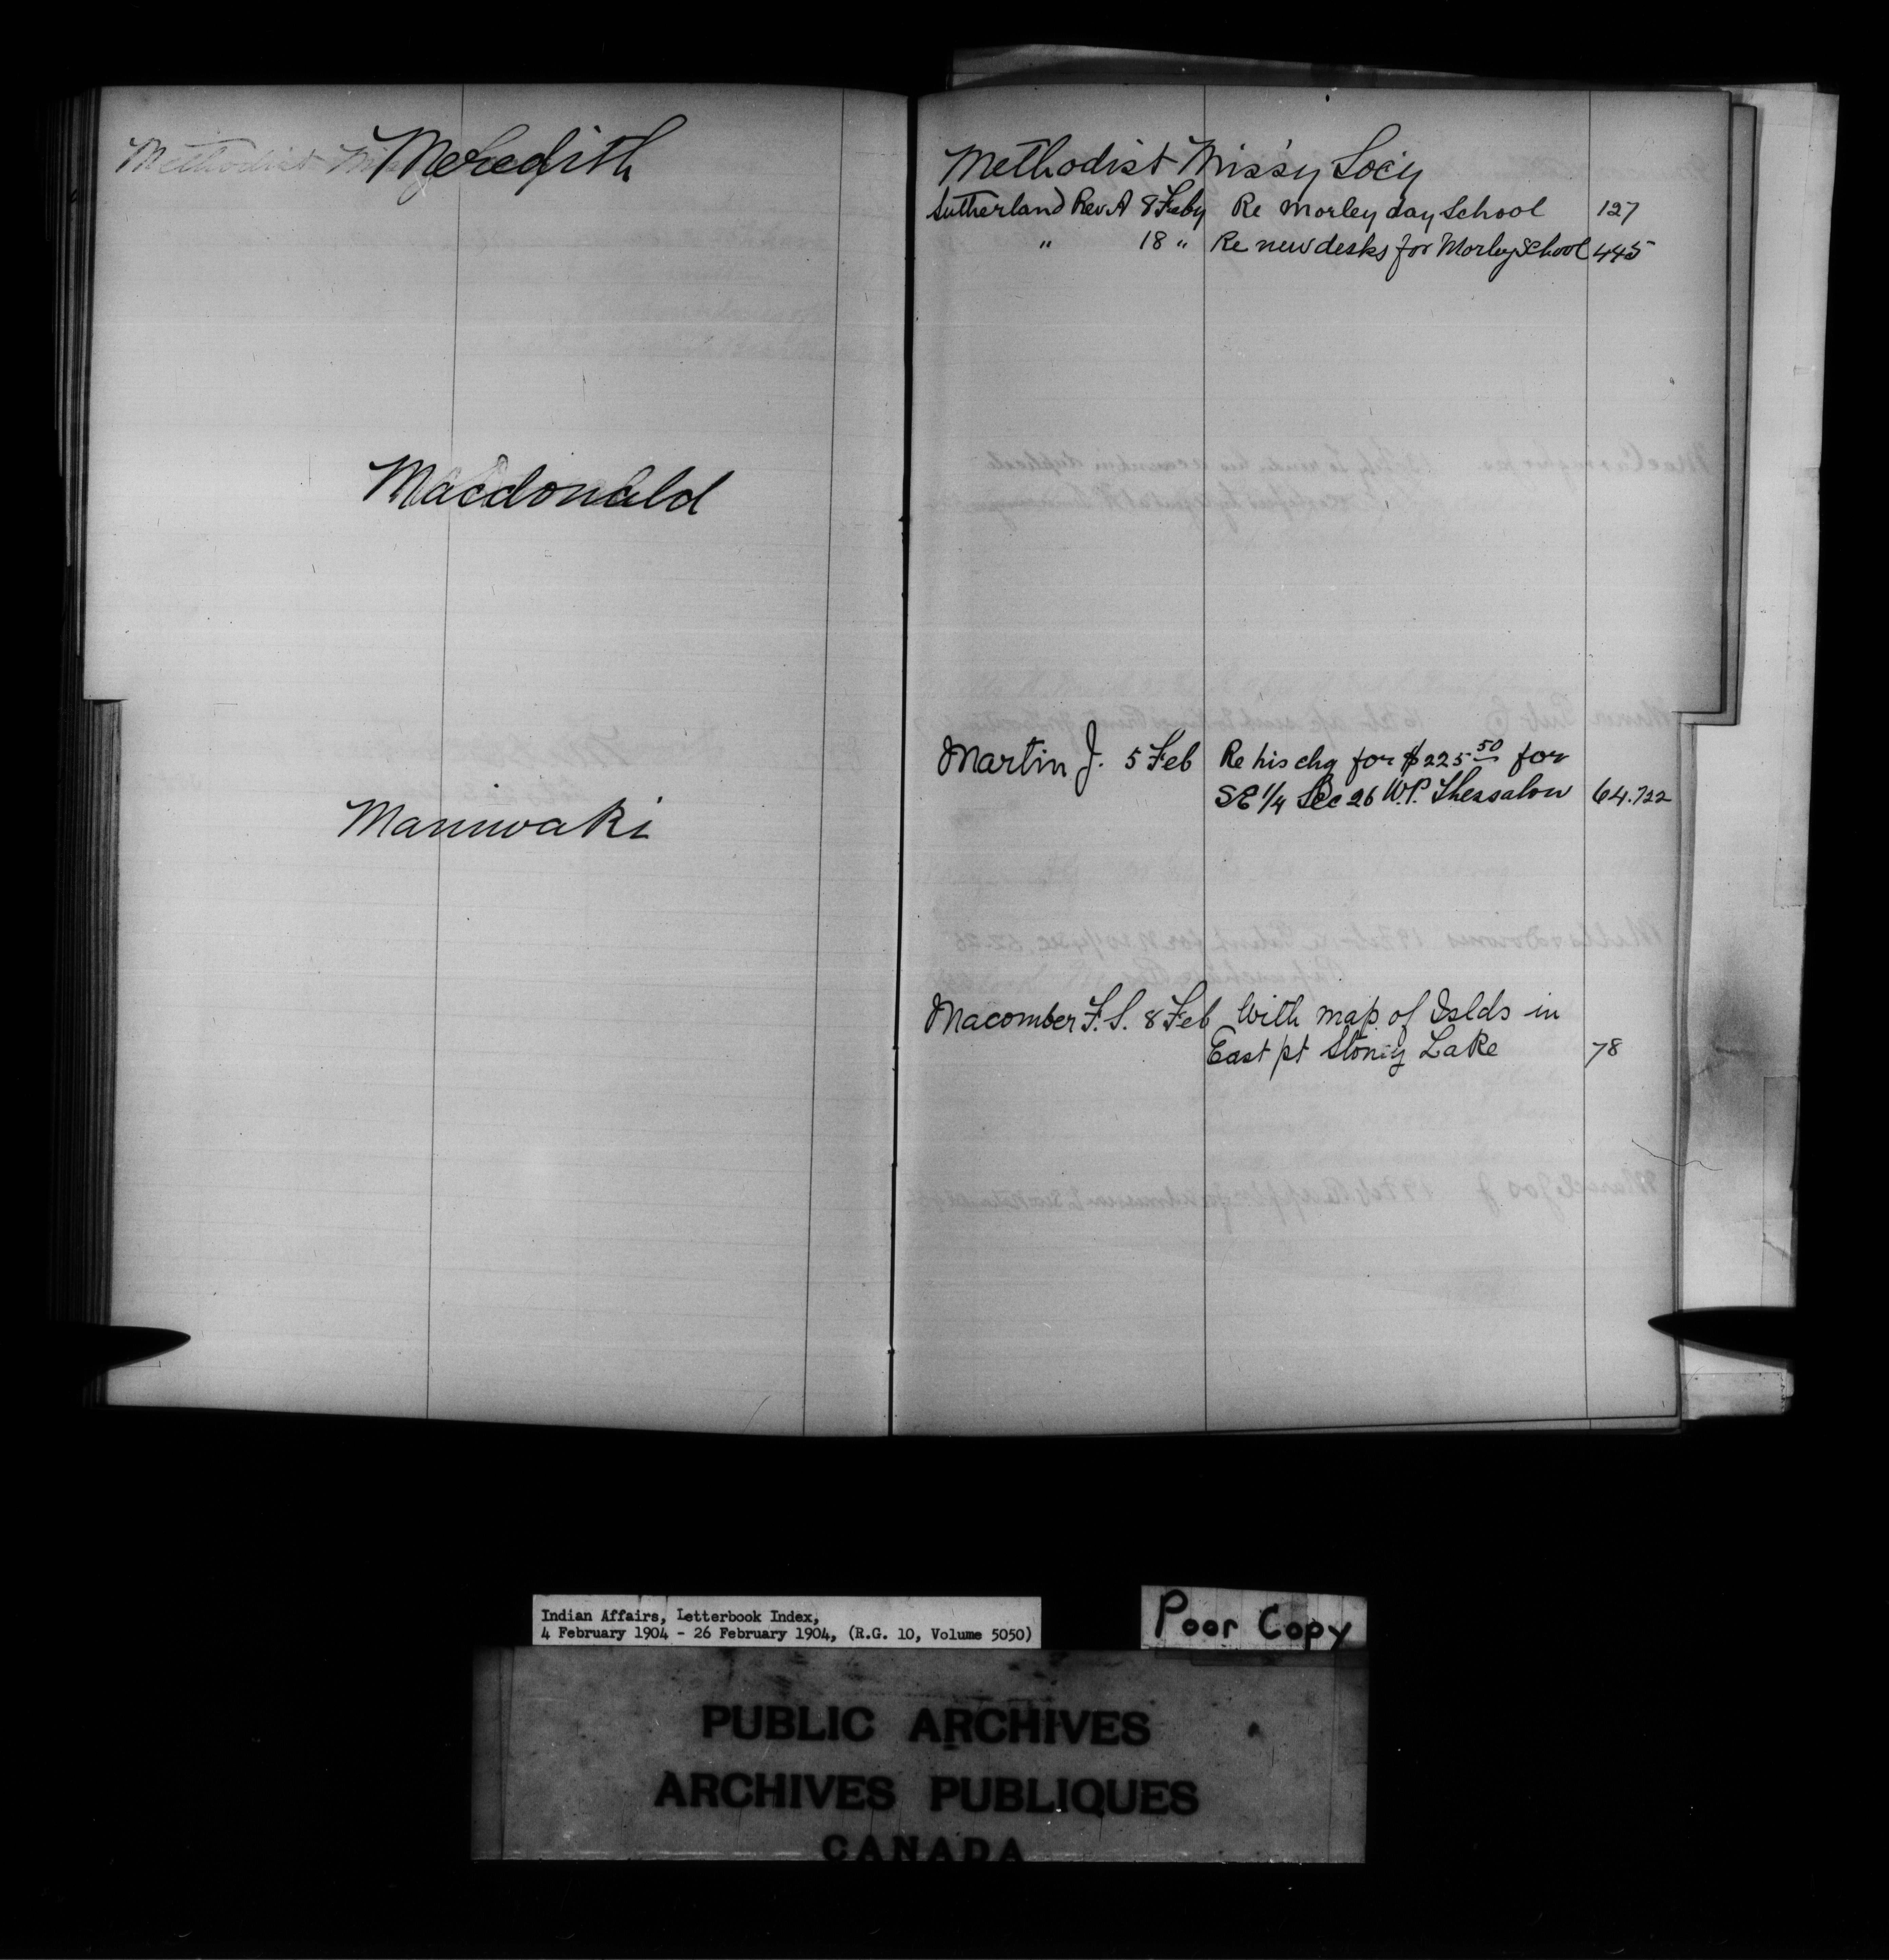 Meredith
Macdonald
Maniwaki
Methodist Miss'y Soc'y
Sutherland Rev A 8 Feby Re Morley day School 127
" 18 " Re new desks for Morley School 445
Martin J. 5 Feb Re his chq for $225 50 for
SE 1/4 Sec 26 W.P. Thessalon 64.722
Macomber F. S. 8 Feb With map of Islds in
East pt Stoney Lake 78
Indian Affairs, Letterbook Index,
4 February 1904 - 26 February 1904, (R.G. 10, Volume 5050)
Poor Copy
PUBLIC ARCHIVES
ARCHIVES PUBLIQUES
CANADA